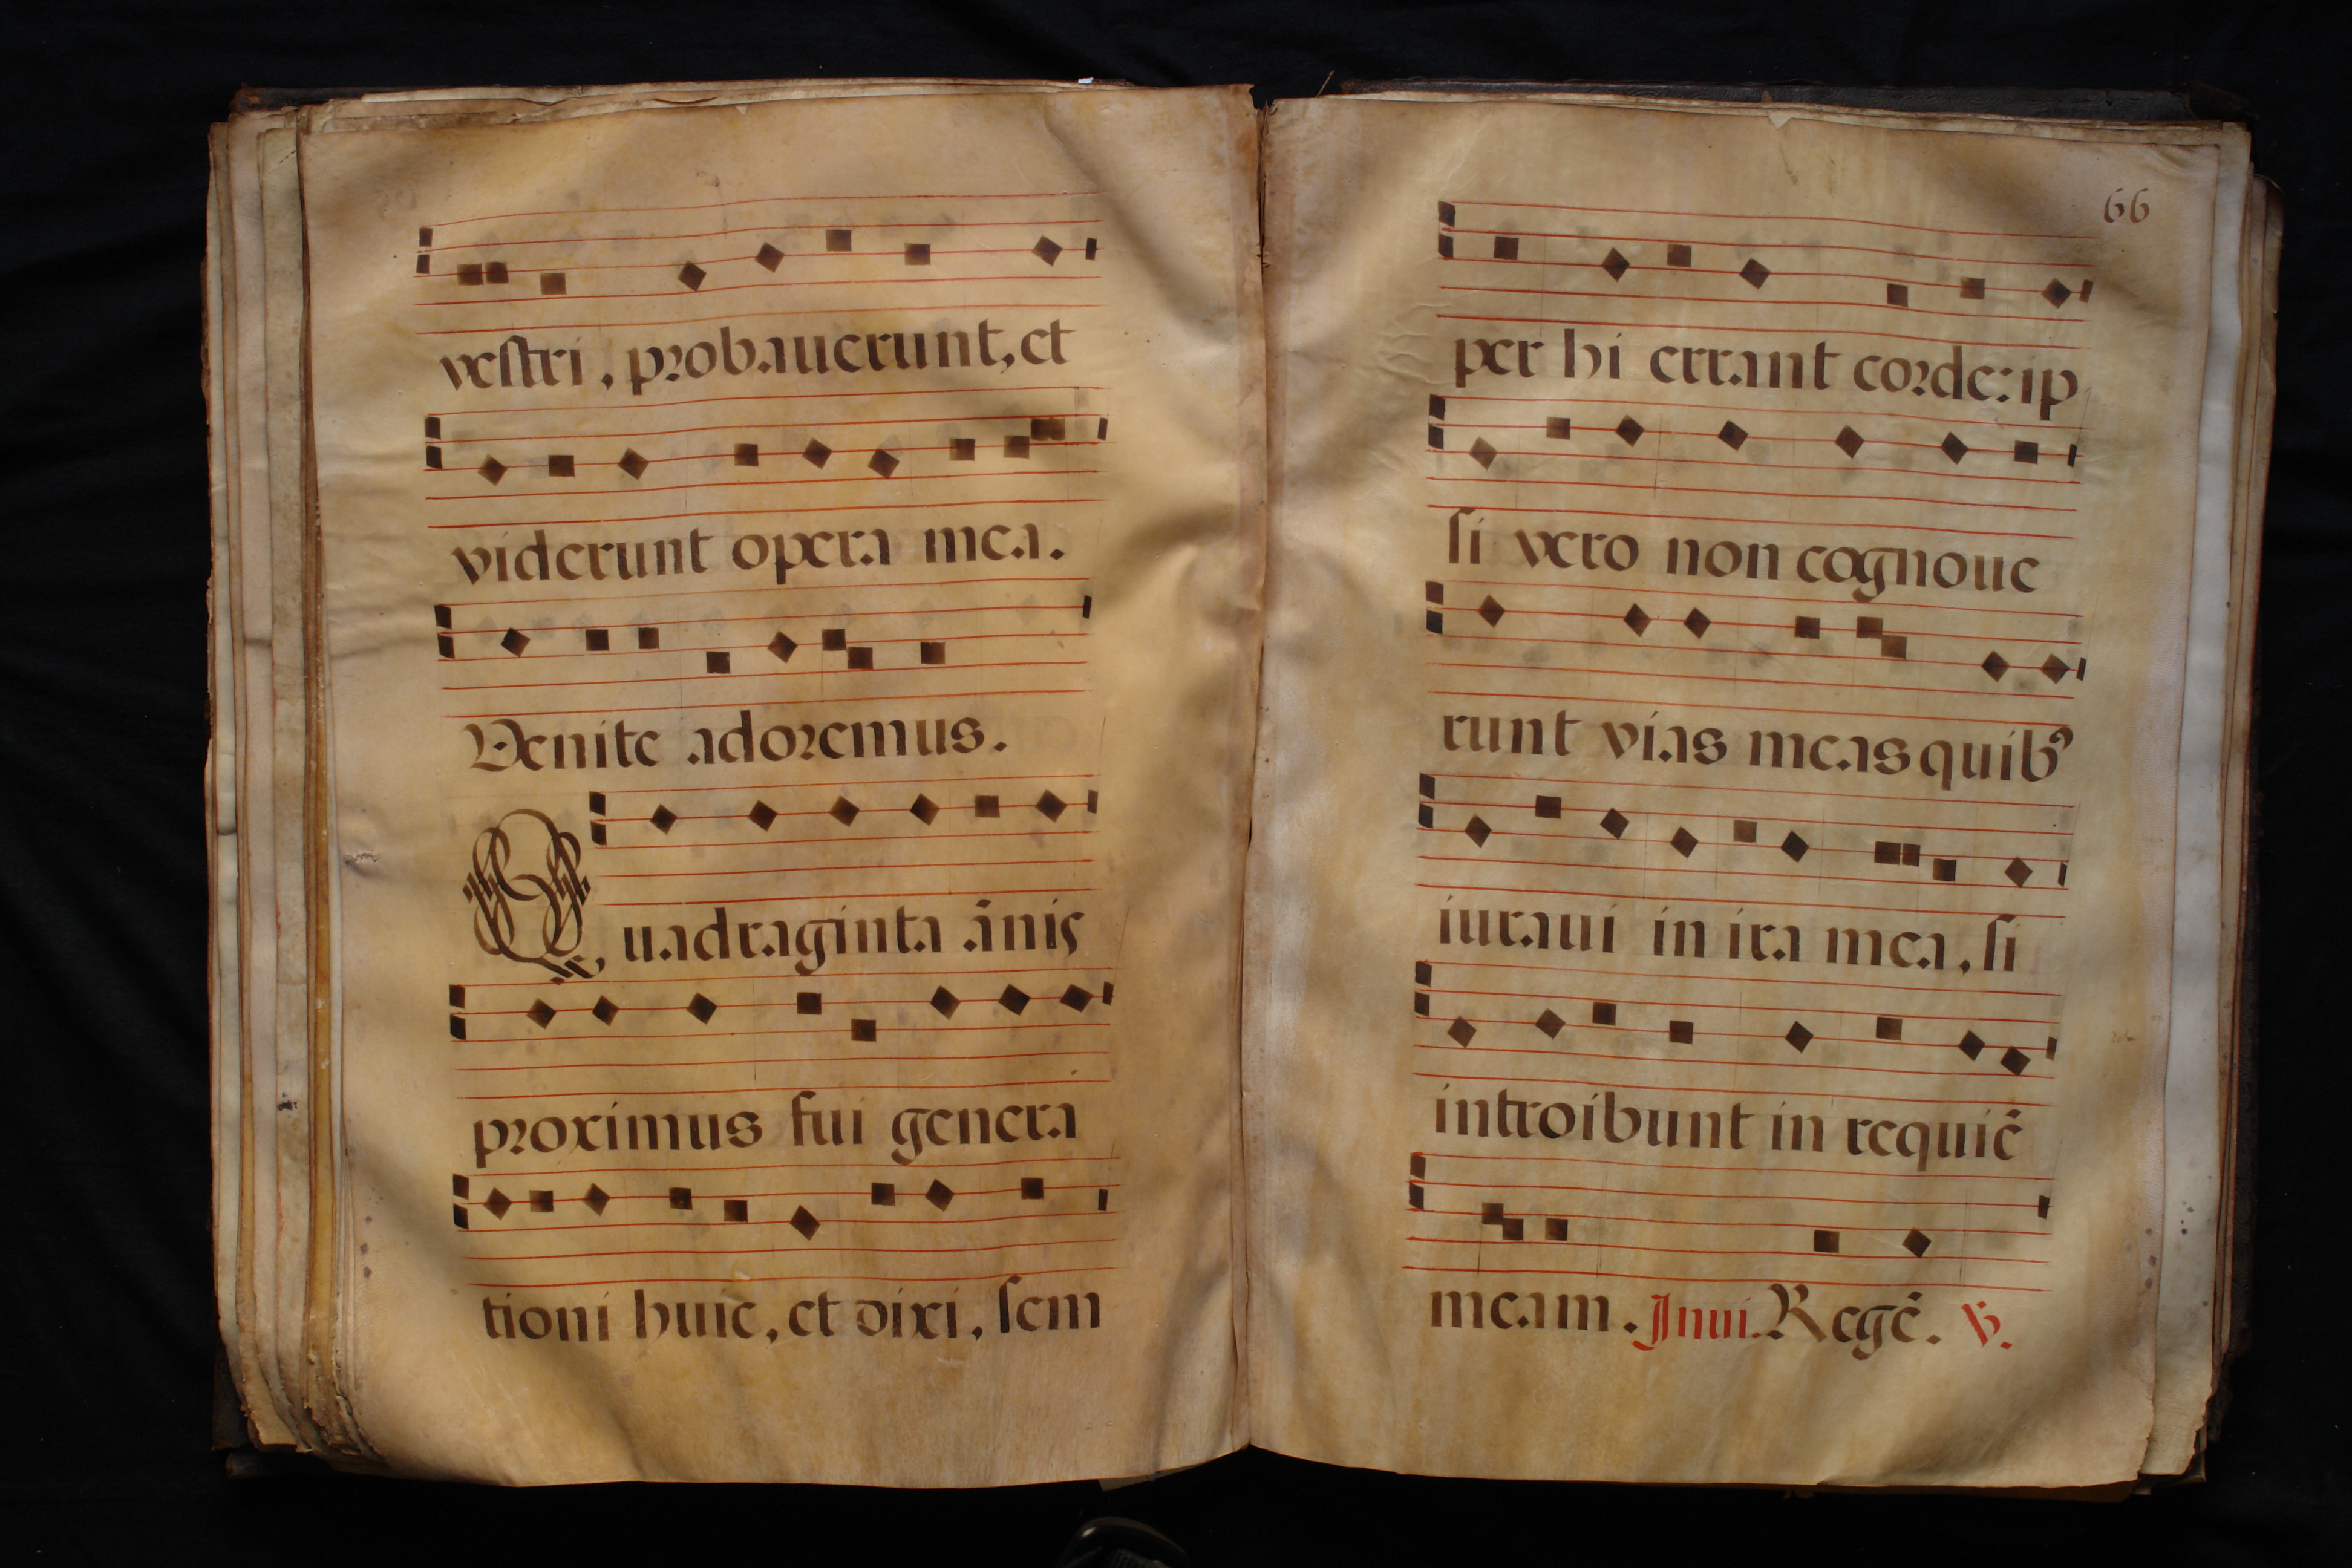 vestri, probauerunt, et
viderunt opera mea.
Venite adoremus.
Quadraginta ānis
proximus fui genera
tioni huic, et dixi, sem
66
per hi errant corde: ip
si vero non cognoue
runt vias meas quibꝰ
iuraui in ira mea, si
introibunt in requiē
meam. Inui. Regē. ℣.